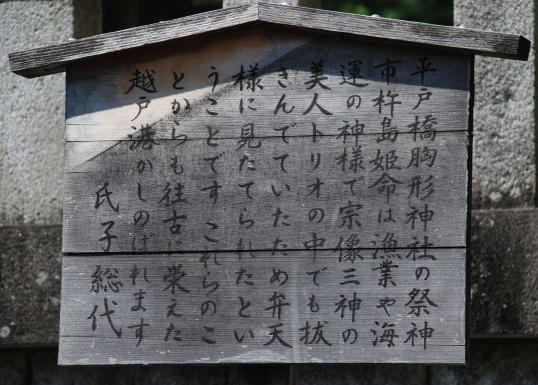 平戸橋胸形神社の祭神
市杵島姫命は漁業や海
運の神様で宗像三神の
美人トリオの中でも抜
きんでていたため弁天
様に見たてられたとい
うことです これらのこ
とからも往古に栄えた
越戸港がしのばれます
氏子総代